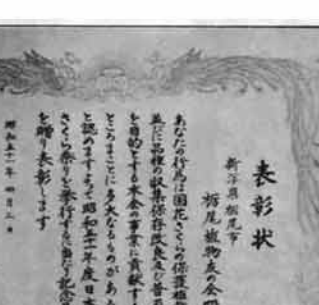 表彰状
新潟県栃尾市
栃尾植物友の会
あなたの行為は国花さくらの保護
並びに品種の収集保存改良及び普
を目的とする本会の事業に貢献する
ところまことに多大なものがあ
と認めますよって昭和五十一年度日本
さくら祭りを挙行するに当り記念
を贈り表彰します
昭和五十一年四月三日